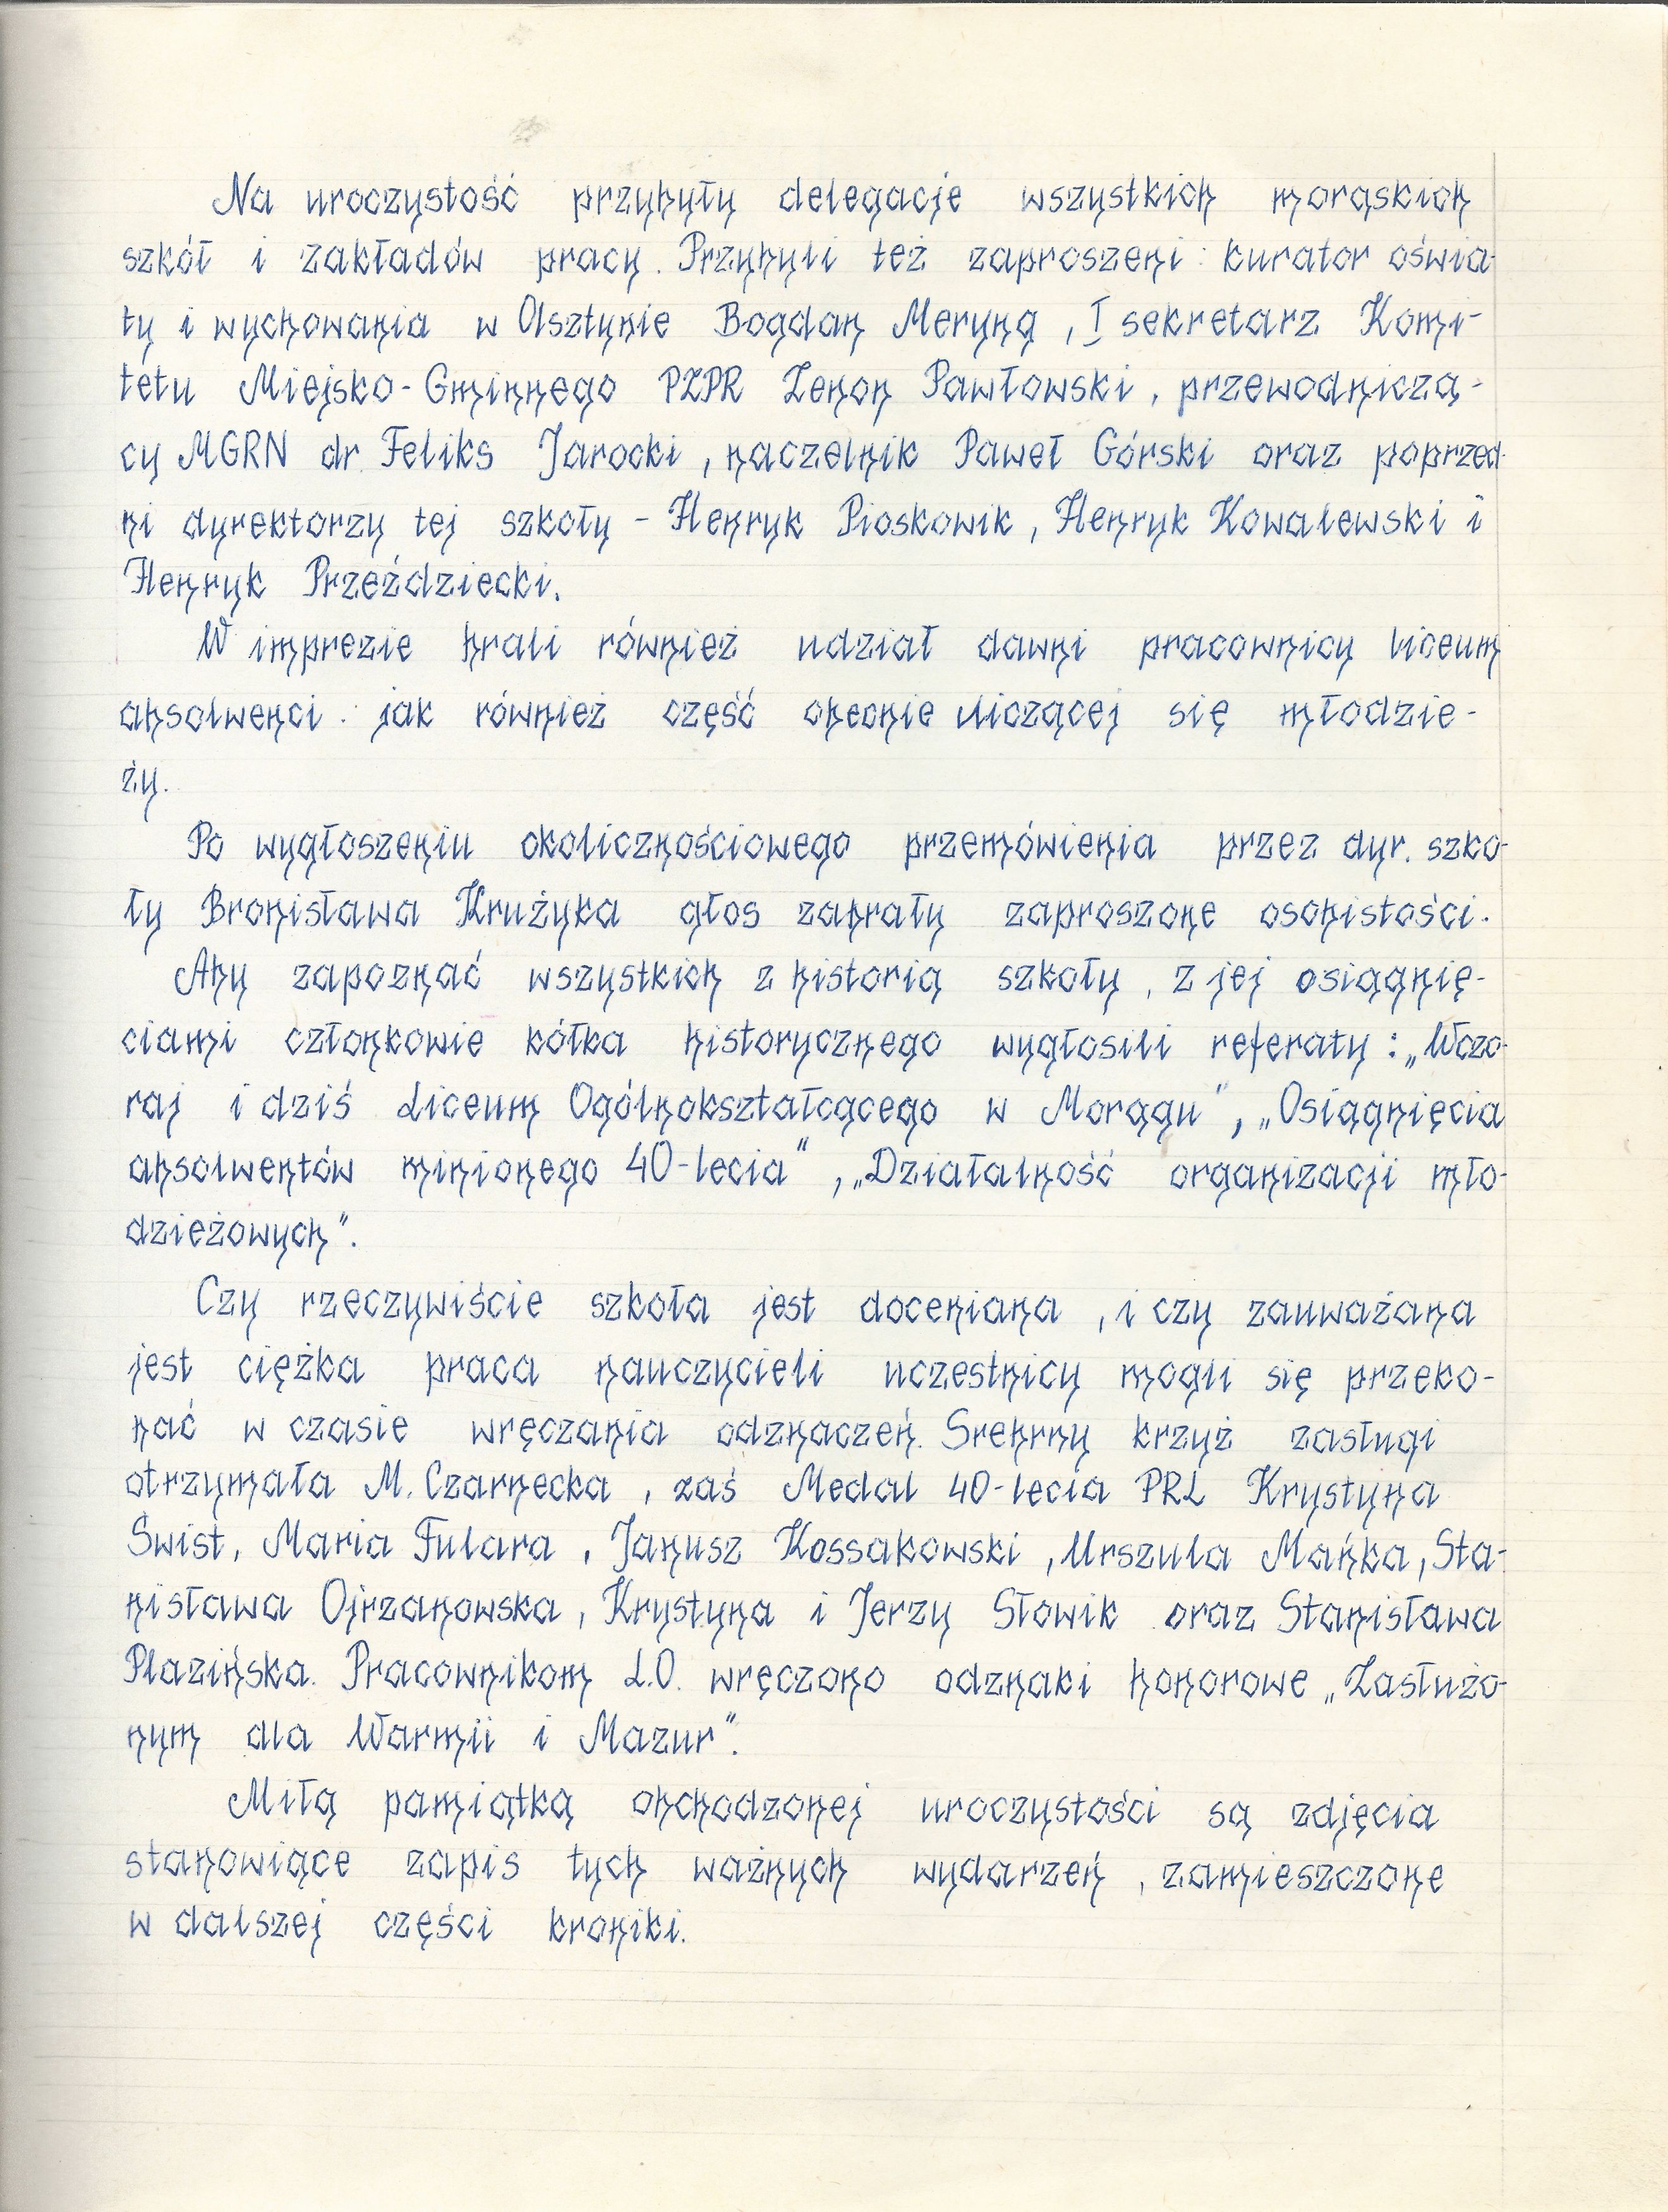 Na uroczystość przybyły delegacje wszystkich morąskich
szkół i zakładów pracy. Przybyli też zaproszeni: kurator oświa-
ty i wychowania w Olsztynie Bogdan Meryng, I sekretarz Komi-
tetu Miejsko-Gminnego PZPR Zenon Pawłowski, przewodniczą-
cy MGRN dr Feliks Jarocki, naczelnik Paweł Górski oraz poprzed-
ni dyrektorzy tej szkoły - Henryk Pioskowik, Henryk Kowalewski i
Henryk Przeździecki.
W imprezie brali również udział dawni pracownicy liceum
absolwenci. jak również część obecnie uczącej się młodzie-
ży.
Po wygłoszeniu okolicznościowego przemówienia przez dyr. szko-
ły Bronisława Krużyka głos zabrały zaproszone osobistości.
Aby zapoznać wszystkich z historią szkoły, z jej osiągnię-
ciami członkowie kółka historycznego wygłosili referaty: „Wczo-
raj i dziś Liceum Ogólnokształcącego w Morągu", „Osiągnięcia
absolwentów minionego 40-lecia", „Działalność organizacji mło-
dzieżowych".
Czy rzeczywiście szkoła jest doceniana, i czy zauważana
jest ciężka praca nauczycieli uczestnicy mogli się przeko-
nać w czasie wręczania odznaczeń. Srebrny krzyż zasługi
otrzymała M. Czarnecka, zaś Medal 40-lecia PRL Krystyna
Świst, Maria Fulara, Janusz Kossakowski, Urszula Mańka, Sta-
nisława Ojrzanowska, Krystyna i Jerzy Słowik oraz Stanisława
Plazińska. Pracownikom L.O. wręczono odznaki honorowe „Zasłużo-
nym dla Warmii i Mazur".
Miłą pamiątką obchodzonej uroczystości są zdjęcia
stanowiące zapis tych ważnych wydarzeń, zamieszczone
w dalszej części kroniki.